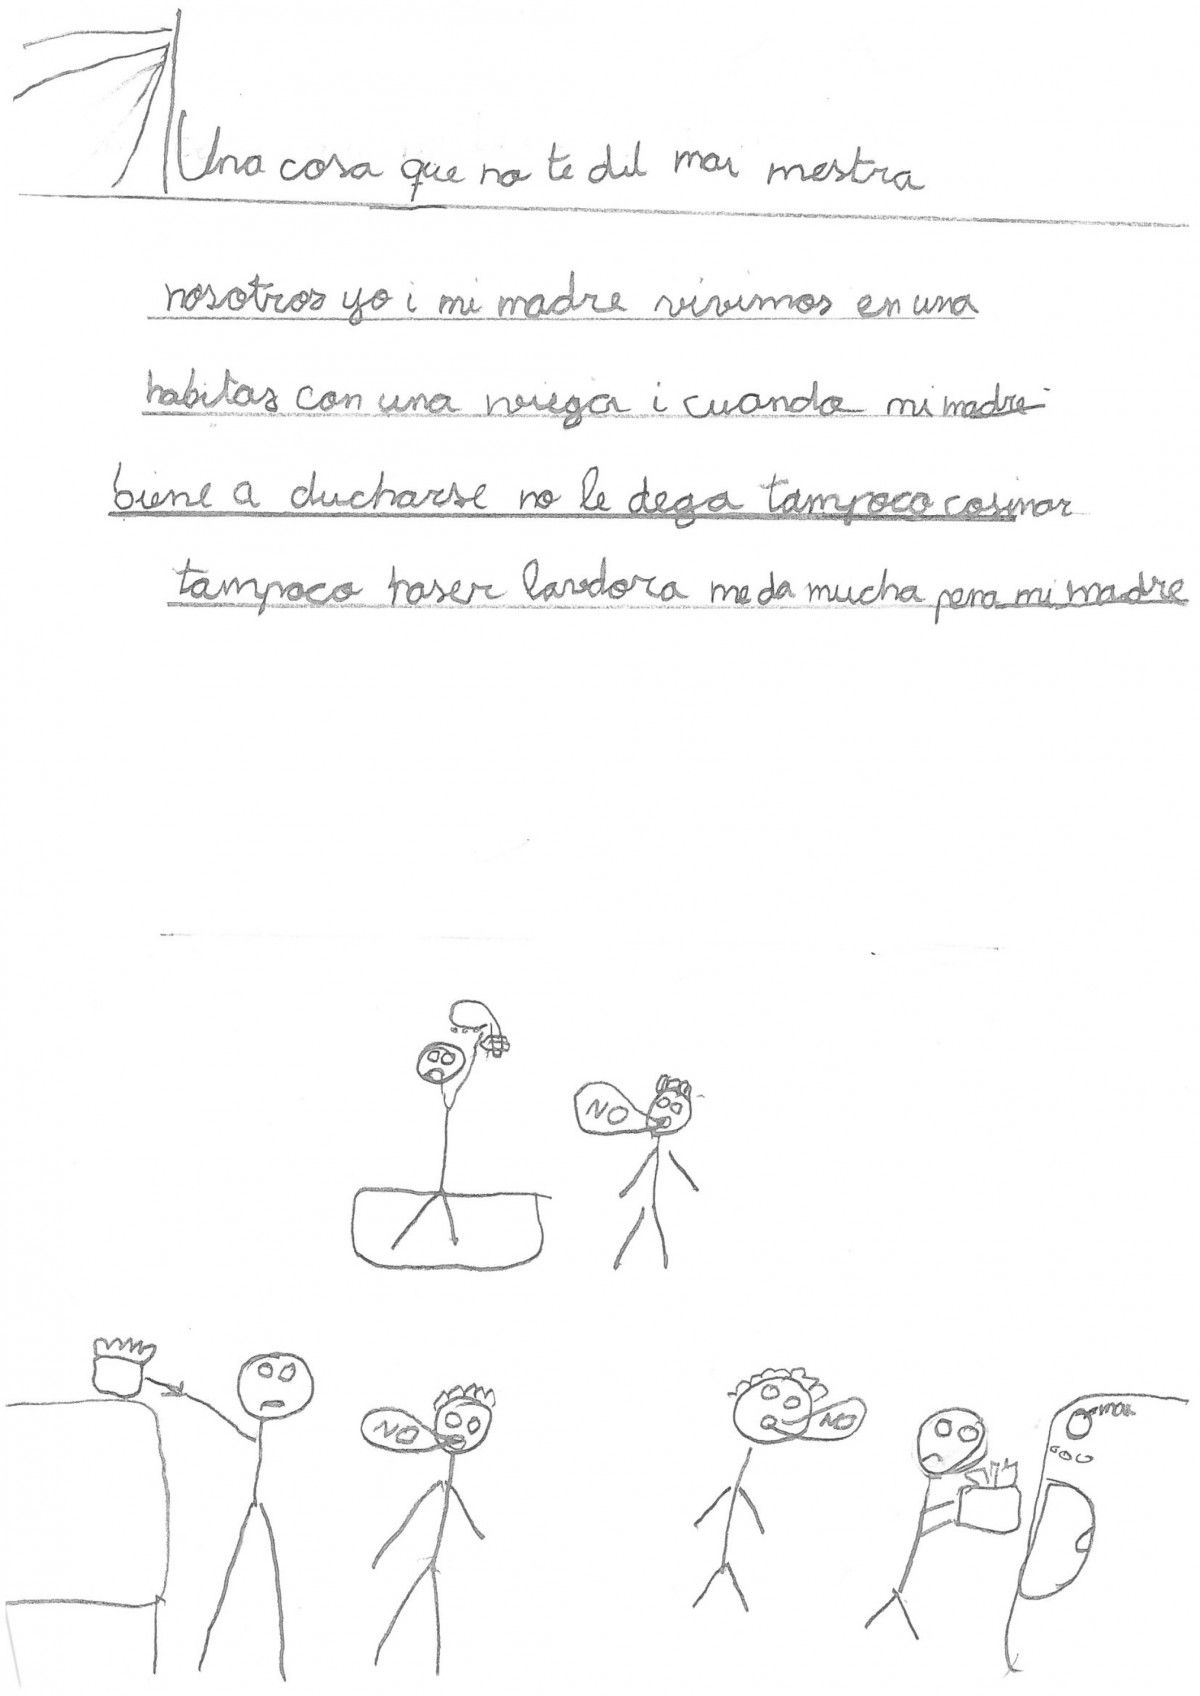 Una cosa que no te dil mai mestra
nosotros yo i mi madre vivimos en una
habitas con una viega i cuando mi madre
biene a ducharse no le dega tampoco cosinar
tampoco haser lavdora me da mucha pena mi madre
NO
NO
NO